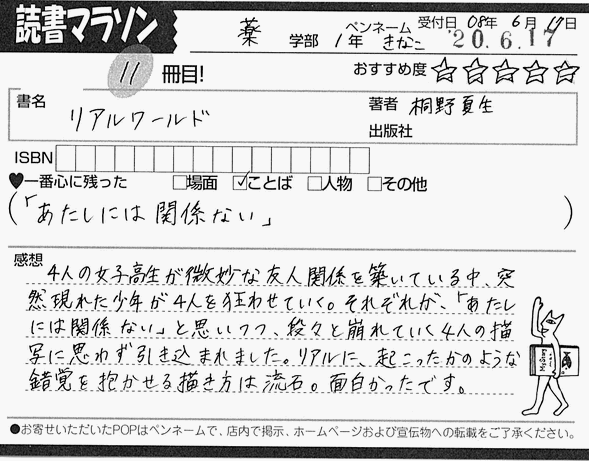 読書マラソン
薬 学部 1年 ペンネーム きなこ 受付日 08年 6月 17日
'20.6.17
11 冊目! おすすめ度 ☆☆☆☆☆
書名 リアルワールド 著者 桐野夏生
出版社
ISBN
♥一番心に残った □場面 ☑ことば □人物 □その他
(「あたしには関係ない」)
感想
4人の女子高生が微妙な友人関係を築いている中、突
然現れた少年が4人を狂わせていく。それぞれが、「あたし
には関係ない」と思いつつ、段々と崩れていく4人の描
写に思わず引き込まれました。リアルに、起こったかのような
錯覚を抱かせる描き方は流石。面白かったです。
●お寄せいただいたPOPはペンネームで、店内で掲示、ホームページおよび宣伝物への転載をご了承ください。